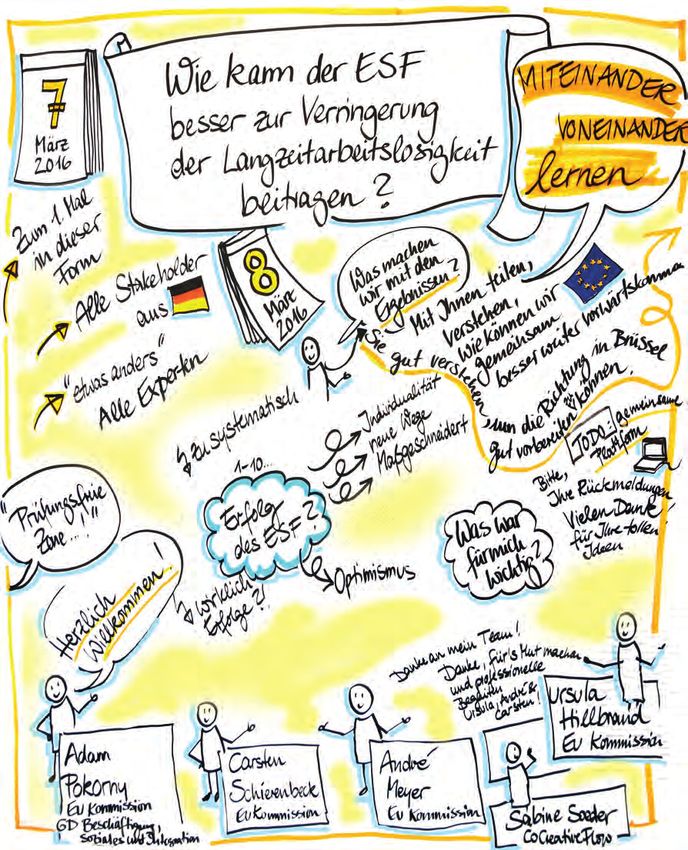 7
März
2016
Wie kann der ESF
besser zur Verringerung
der Langzeitarbeitslosigkeit
beitragen?
MITEINANDER
VONEINANDER
lernen
Zum 1. Mal
in dieser
Form
Alle Stakeholder
aus
"etwas anders"
Alle Experten
8
März
2016
Was machen
wir mit den
Ergebnissen?
Mit Ihnen teilen,
verstehen,
wie können wir
gemeinsam
besser weiter vorwärtskommen
Sie gut verstehen, um die Richtung in Brüssel
gut vorbereiten können.
zu systematisch
Individualität
neue Wege
Maßgeschneidert
1-10...
Erfolg
des ESF?
Optimismus
wirklich
Erfolge?!
TODO
gemeinsame
Plattform
Bitte,
Ihre Rückmeldungen
Vielen Dank
für Ihre tollen
Ideen
Was war
für mich
wichtig?
"Prüfungsfreie
Zone...!"
Herzlich
Willkommen!
Danke an mein Team!
Danke, für's Mut machen
und professionelle
Ursula, André &
Carsten!
Adam
Pokorny
EU Kommission
GD Beschäftigung,
soziales und Integration
Carsten
Schierenbeck
EU Kommission
André
Meyer
EU Kommission
Ursula
Hillbrand
EU Kommission
Sabine Soeder
CoCreativeFlow